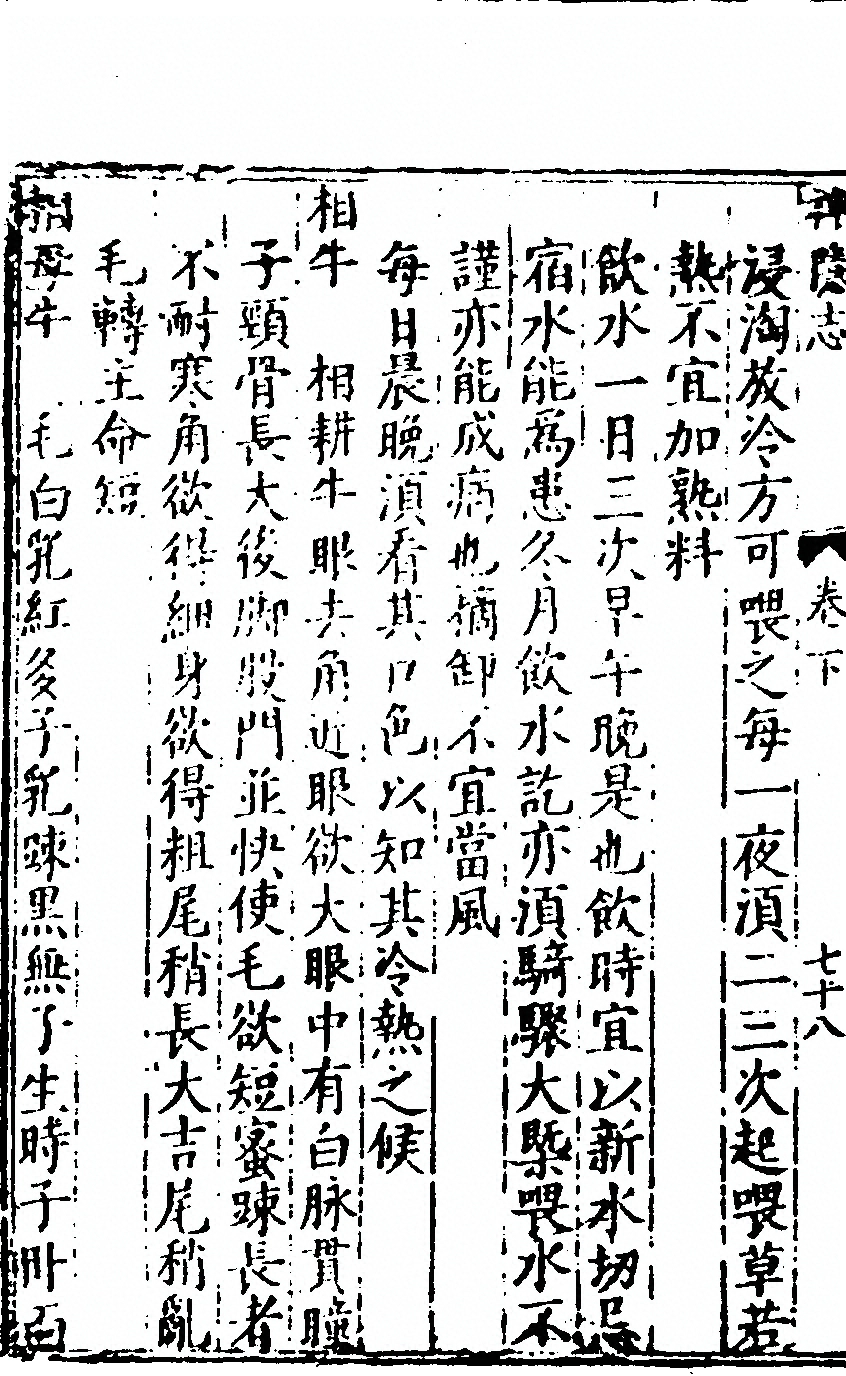 神隱志 卷下 七十八
浸淘放冷方可喂之每一夜湏二三次起喂草若
熱不宜加熟料
飲水一日三次早午晚是也飲時宜以新水切忌
宿水能爲患冬月飲水訖亦湏騎驟大槩喂水不
謹亦能成病也摘卸不宜當風
每日晨晚湏看其口色以知其冷熱之候
相牛 相耕牛眼去角近眼欲大眼中有白脉貫瞳
子頸骨長大後脚股門並快使毛欲短蜜踈長者
不耐寒角欲得細身欲得粗尾稍長大吉尾稍亂
毛轉主命短
相母牛 毛白乳紅多子乳踈黒無子生時子卧面